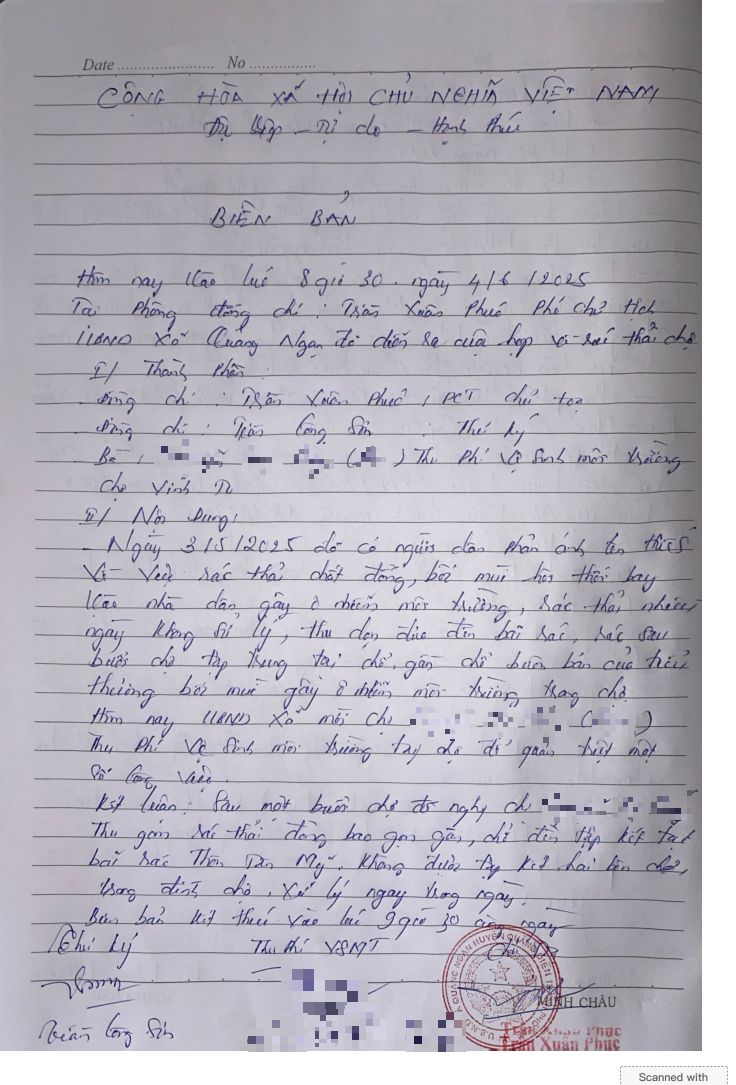 Date ...................... No ...............
CỘNG HÒA XÃ HỘI CHỦ NGHĨA VIỆT NAM
Độc lập - Tự do - Hạnh Phúc
BIÊN BẢN
Hôm nay Vào lúc 8 giờ 30. ngày 4/6/2025
Tại Phòng đồng chí : Trần Xuân Phước Phó chủ tịch
UBND Xã Quảng Ngạn đã diễn ra cuộc họp về rác thải chợ
I/ Thành Phần:
Đồng chí : Trần Xuân Phước, PCT chủ tọa
Đồng chí : Trần Công Sin : Thư Ký
Bà : ( ) Thu Phí Vệ Sinh môi trường
chợ Vĩnh Tu
II/ Nội Dung:
- Ngày 3/5/2025 đã có người dân phản ánh lên
Về Việc rác thải chất đống, bốc mùi hôi thối bay
Vào nhà dân gây ô nhiễm môi trường, rác thải nhiều
ngày không Sử lý, thu dọn đưa đến bãi rác, rác sau
buổi chợ tập trung tại chổ, gần chổ buôn bán của tiểu
thương bốc mùi gây ô nhiễm môi trường trong chợ
Hôm nay UBND Xã mời chị ( )
Thu Phí Vệ Sinh môi trường tại chợ để quán triệt một
Số Công Việc.
Kết luận: Sau một buổi chợ đề nghị chị
Thu gom rác thải đóng bao gọn gàng, chở đến tập kết tại
bãi rác Thôn Tân Mỹ. Không được tập kết hai bên chợ,
trong đình chợ, Xử lý ngay trong ngày.
Biên bản kết thúc vào lúc 9 giờ 30 cùng ngày
Thư Ký Thu Phí VSMT Chủ Tọa
MINH CHÂU
Trần Công Sin
Trần Xuân Phước
Scanned with